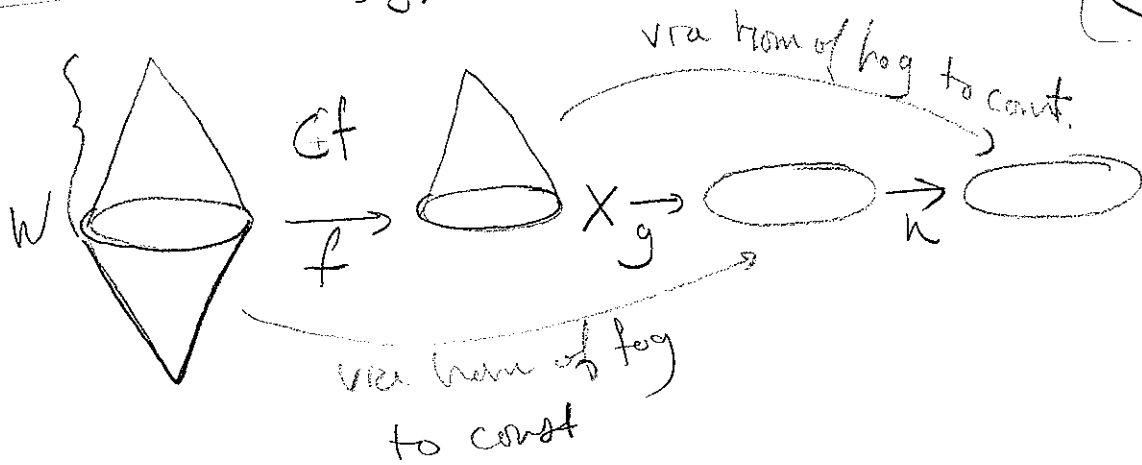 via hom of hog to const.
C₊f
W
f
X
g
h
via hom of fog
to const